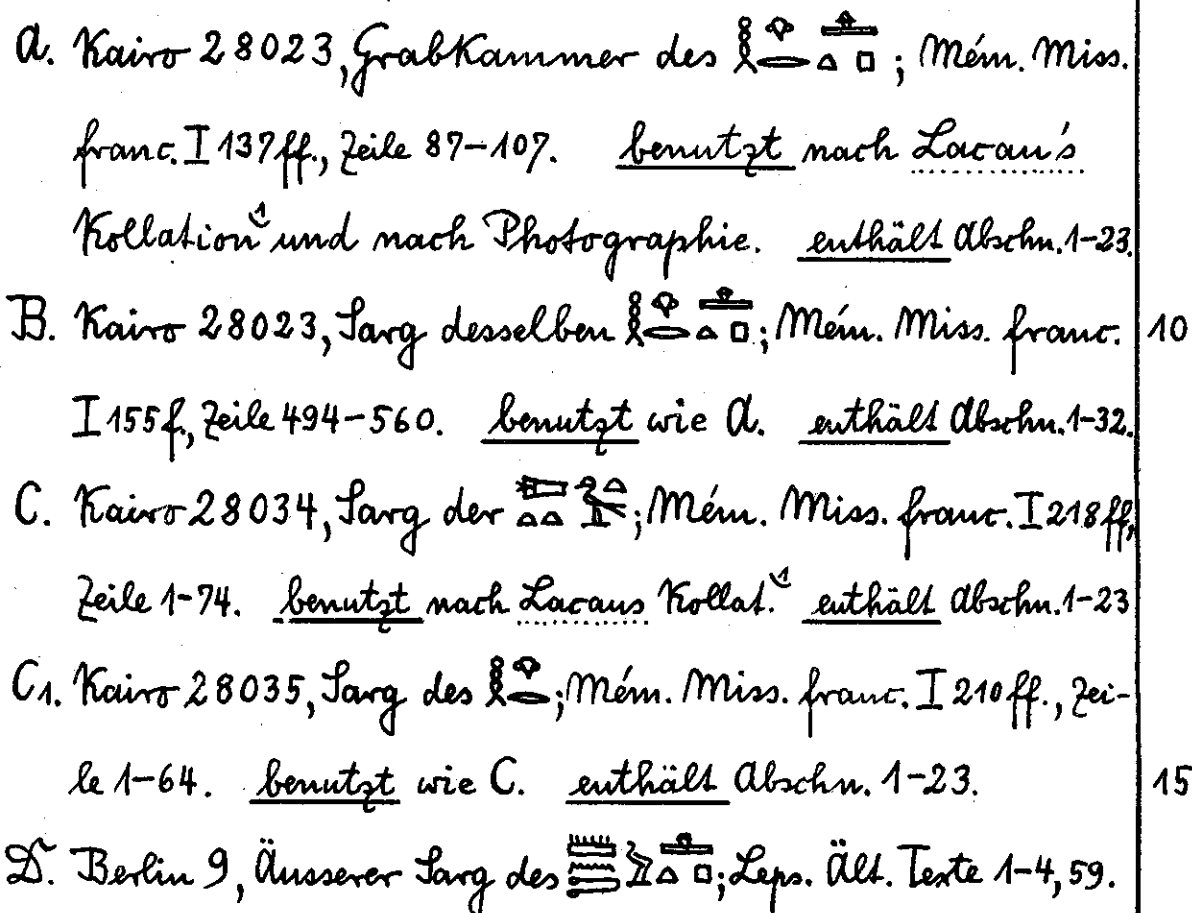 A. Kairo 28023, Grabkammer des 𓎛𓁷𓂋𓊵𓏏𓊪; Mém. Miss.
franc. I 137ff., Zeile 87-107. benutzt nach Lacau's
Kollation¹ und nach Photographie. enthält Abschn. 1-23.
B. Kairo 28023, Sarg desselben 𓎛𓁷𓂋𓊵𓏏𓊪; Mém. Miss. franc. 10
I 155f., Zeile 494-560. benutzt wie A. enthält Abschn. 1-32.
C. Kairo 28034, Sarg der ; Mém. Miss. franc. I 218ff,
Zeile 1-74. benutzt nach Lacaus Kollat.¹ enthält Abschn. 1-23
C1. Kairo 28035, Sarg des 𓎛𓁷𓂋; Mém. Miss. franc. I 210ff., Zei-
le 1-64. benutzt wie C. enthält Abschn. 1-23. 15
D. Berlin 9, Äusserer Sarg des 𓏠𓈖𓍿𓅱𓊵𓏏𓊪; Leps. Ält. Texte 1-4, 59.